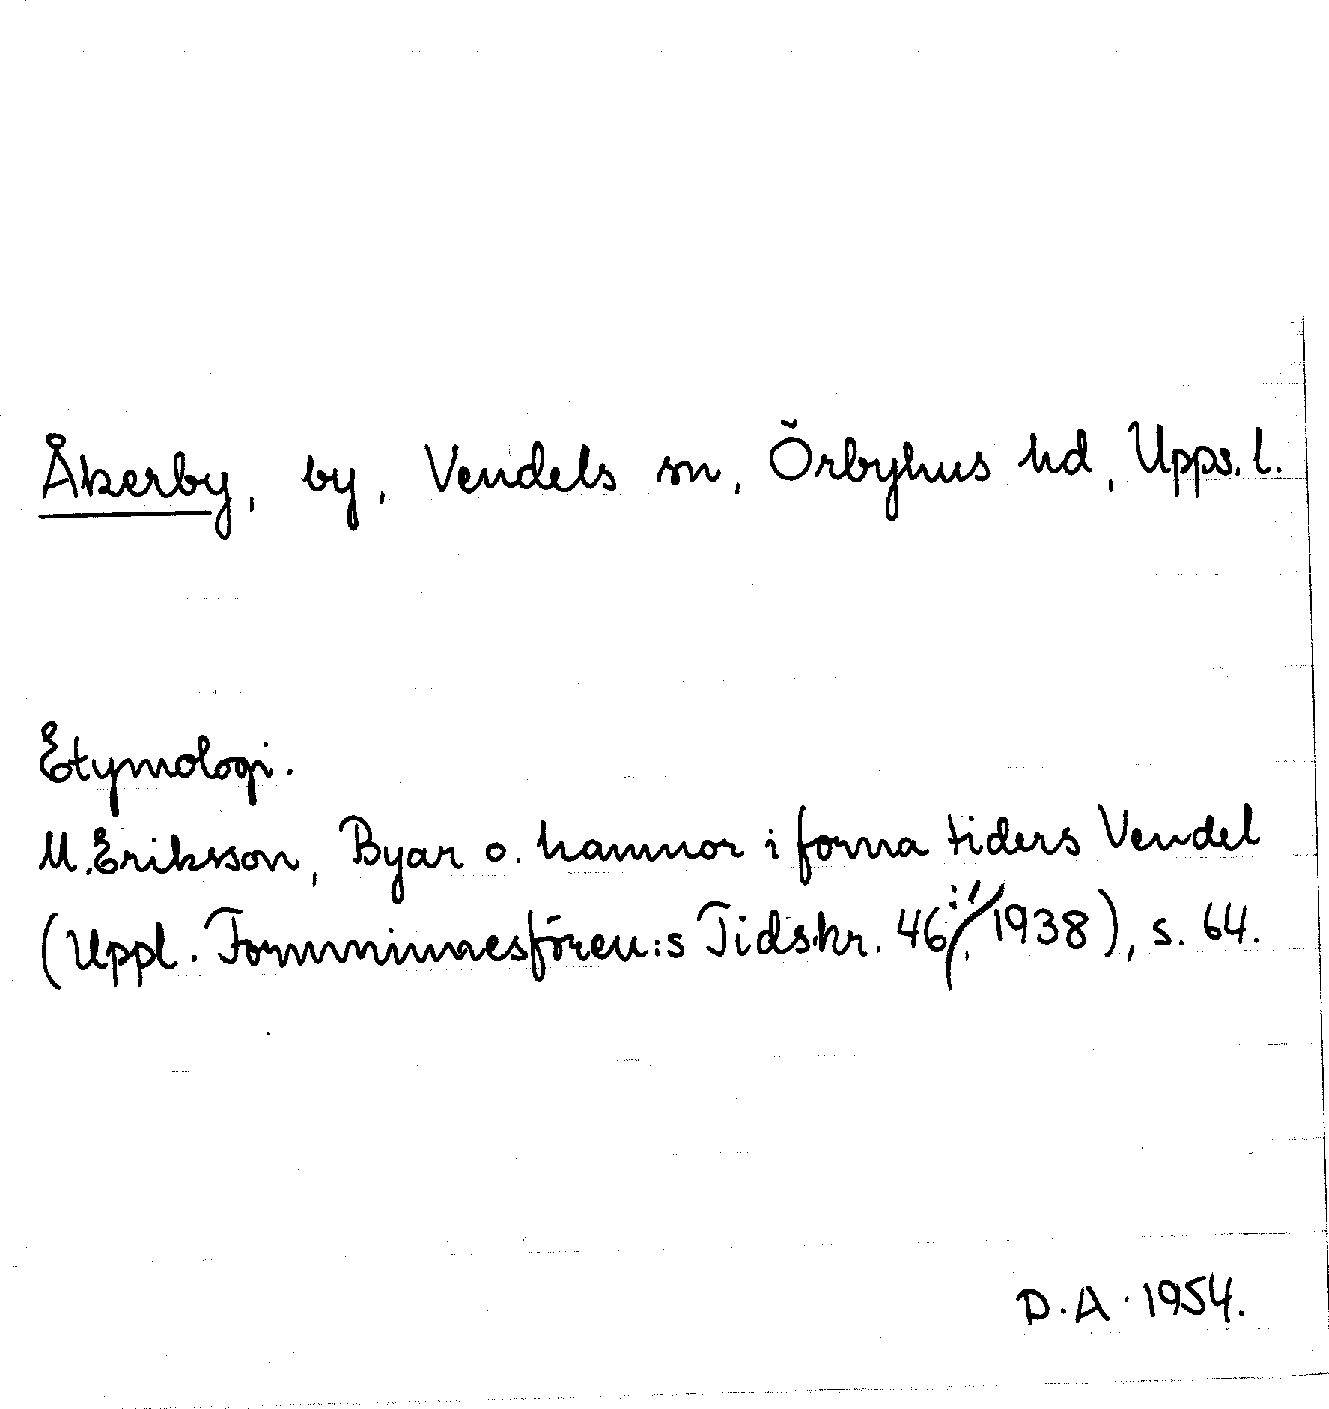 Åkerby, by, Vendels sn, Örbyhus hd, Upps. l.
Etymologi.
M. Eriksson, Byar o. hamnor i forna tiders Vendel
(Uppl. Fornminnesfören:s Tidskr. 46:1/1938), s. 64.
D. A. 1954.